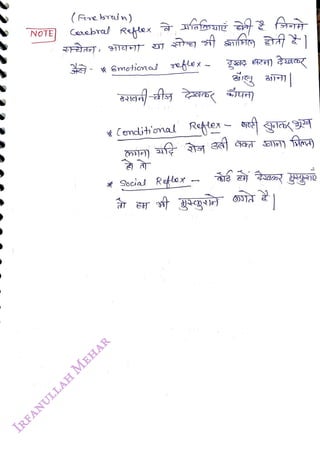 (Forebrain)
NOTE Cerebral Reflex वे प्रतिक्रियाएं होती है जिनमे
सचेतना, भावना या सोच भी शामिल होती है।
जैसे- * Emotional reflex - दुखद घटना देखकर
आंसु आना।
डरावनी-चीज देखकर काँपना
* Conditional Reflex - घण्टी सुनकर भूख
लगना यदि रोज उसी वक्त खाना मिलता
हो तो
* Social Reflex - कोई हमें देखकर मुस्कुराएं
तो हम भी मुस्कुराने लगते है।
IRFANULLAH MEHAR